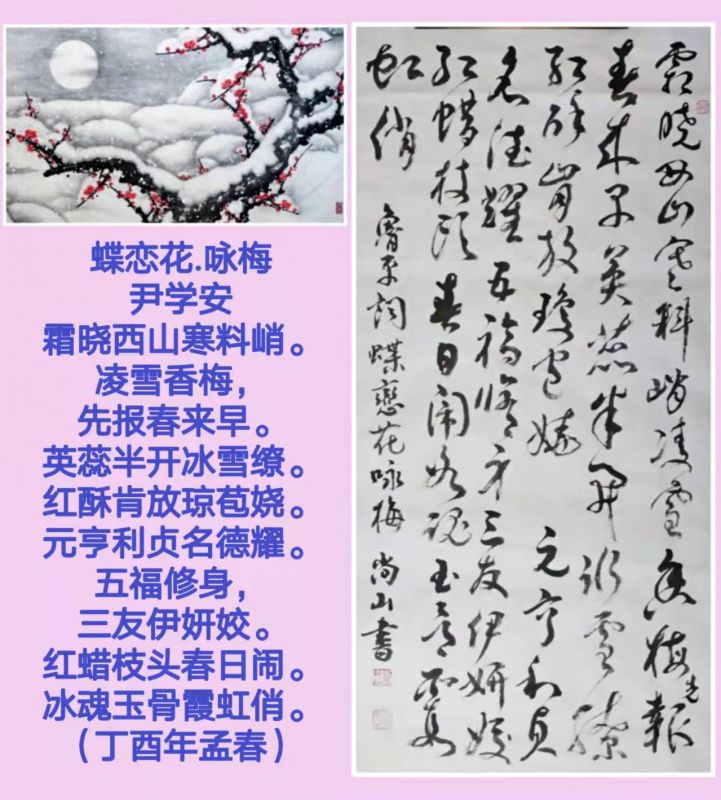 蝶恋花.咏梅
尹学安
霜晓西山寒料峭。
凌雪香梅，
先报春来早。
英蕊半开冰雪缭。
红酥肯放琼苞娆。
元亨利贞名德耀。
五福修身，
三友伊妍姣。
红蜡枝头春日闹。
冰魂玉骨霞虹俏。
（丁酉年孟春）
霜晓西山寒料峭凌雪香梅先報
春来早英蕊半开冰雪缭
红酥肯放瓊苞娆元亨利贞
名德耀五福修身三友伊妍姣
红蜡枝头春日闹冰魂玉骨霞
虹俏
魯平詞蝶戀花咏梅尚山書